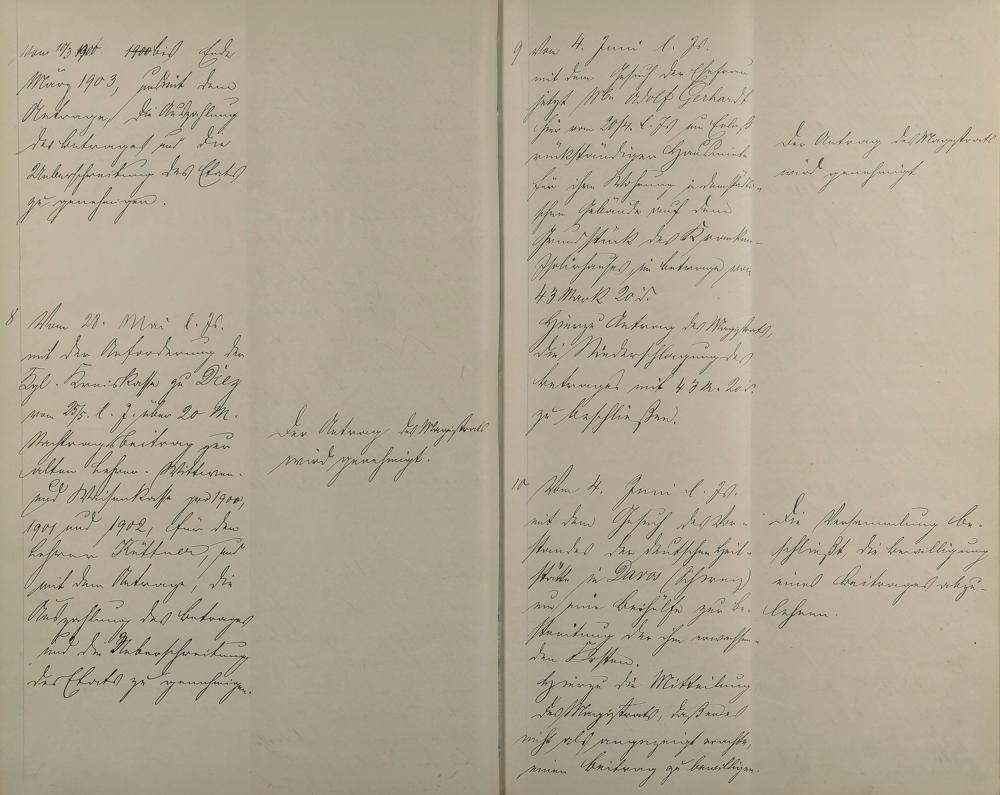 vom 17/3 1900 bis Ende
März 1903, und mit dem
Antrage, die Auszahlung
des Betrages und die
Ueberschreitung des Etats
zu genehmigen.
8 Vom 28. Mai l. Js.
mit der Anforderung der
Kgl. Kreiskasse zu Diez
vom 25/5. l. J. über 20 M.
Nachtragsbeitrag zur
alten Lehrer-Wittwen-
und Waisenkasse pro 1900,
1901 und 1902, für den
Lehrer Küttner, und
mit dem Antrage, die
Auszahlung des Betrages
und die Ueberschreitung
des Etats zu genehmigen.
Der Antrag des Magistrats
wird genehmigt.
9 Vom 4. Juni l. Js.
mit dem Gesuch der Ehefrau
Adolf Gerhardt
vom 20/4. l. Js um Erlaß
rückständiger Hausmiete
für ihre Wohnung in dem städti-
schen Gebäude auf dem
Grundstück des Kranken-
Isolirhauses, im Betrage von
43 Mark 20 d.
Hierzu Antrag des Magistrats,
die Niederschlagung des
Betrages mit 43 M. 20 d.
zu beschließen.
Der Antrag des Magistrats
wird genehmigt
10 Vom 4. Juni l. Js.
mit dem Gesuch des Vor-
standes der deutschen Heil-
stätte in Davos (Schweiz)
um eine Beihülfe zur Be-
streitung der ihr erwachsen-
den Kosten.
Hierzu die Mitteilung
des Magistrats, daß er es
nicht als angezeigt erachte,
einen Beitrag zu bewilligen.
Die Versammlung be-
schließt, die Bewilligung
eines Beitrages abzu-
lehnen.